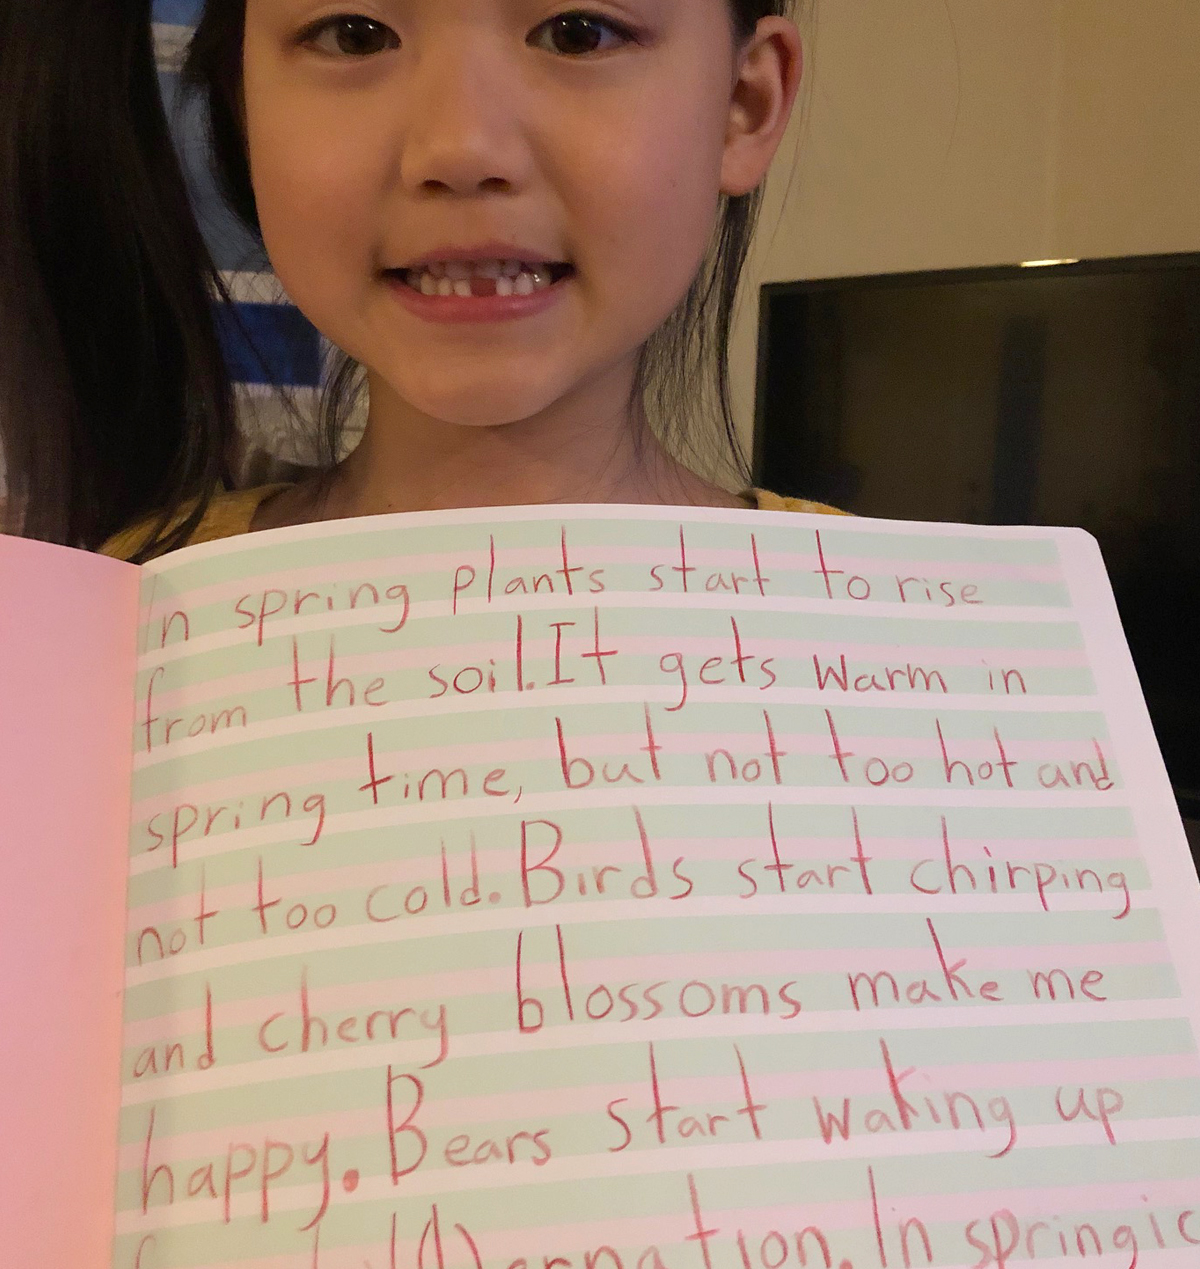 In spring plants start to rise
from the soil. It gets warm in
spring time, but not too hot and
not too cold. Birds start chirping
and cherry blossoms make me
happy. Bears start waking up
In spring